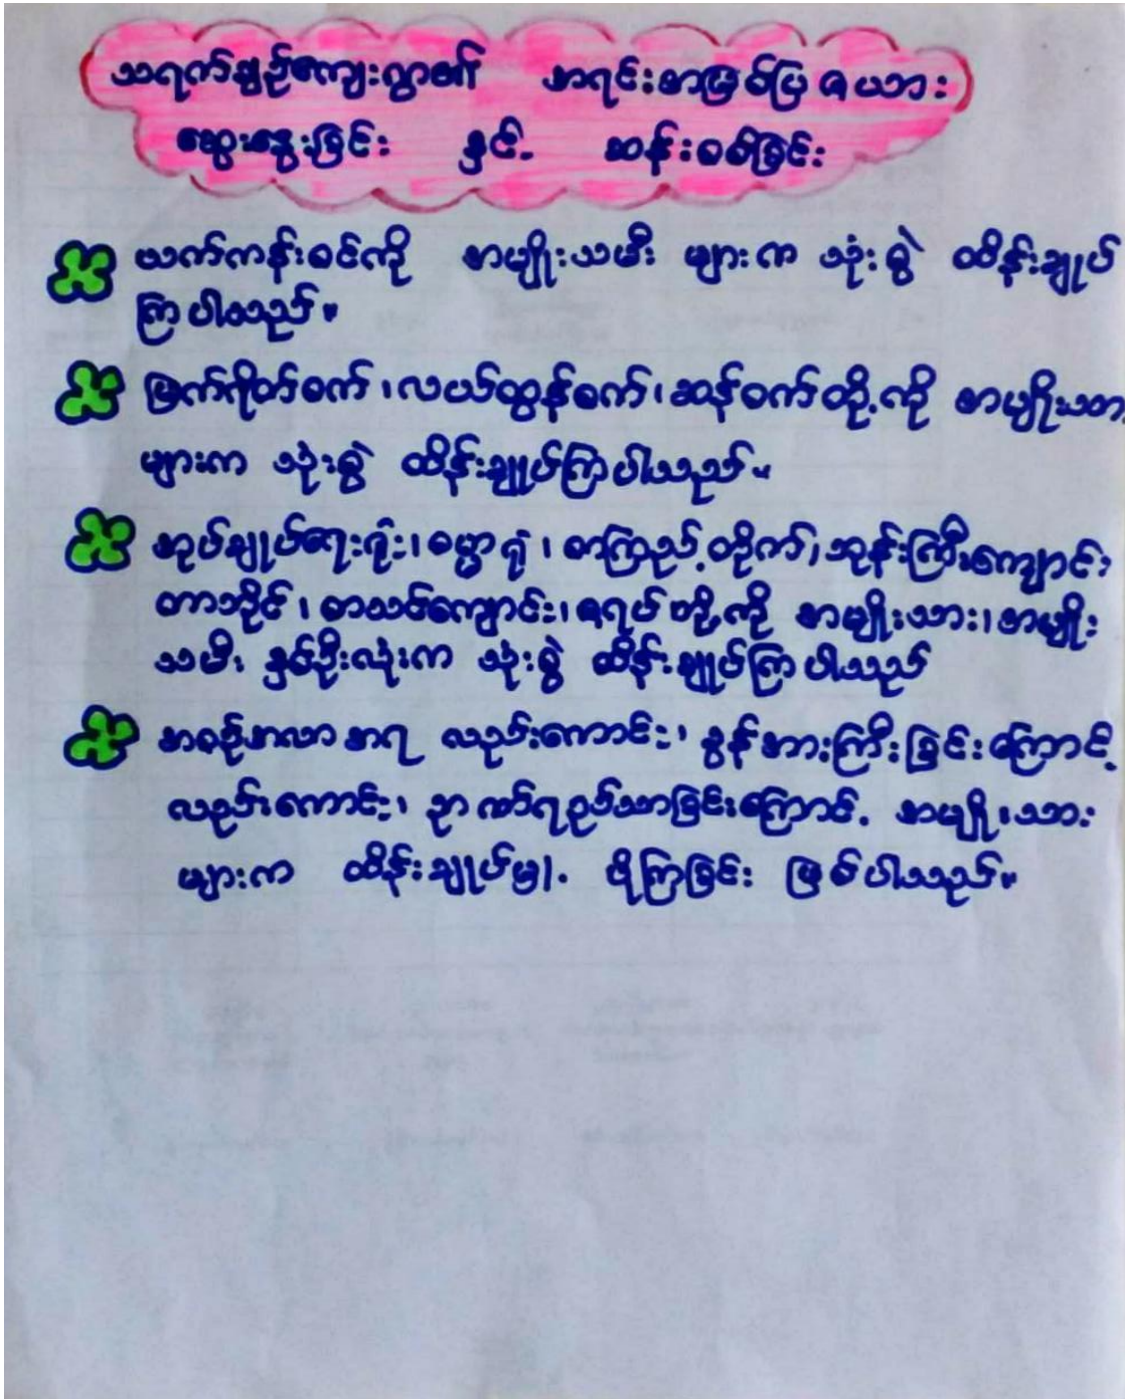 သရက်ချဉ်ကျေးရွာ၏ အရင်းအမြစ်ပြဇယား
ဆွေးနွေးခြင်း နှင့် ဆန်းစစ်ခြင်း
ယက်ကန်းစင်ကို အမျိုးသမီး များက သုံးစွဲ ထိန်းချုပ်
ကြပါသည်။
မြက်ရိတ်စက်၊ လယ်ထွန်စက်၊ ဆန်စက်တို့ကို အမျိုးသား
များက သုံးစွဲ ထိန်းချုပ်ကြပါသည်။
အုပ်ချုပ်ရေးရုံး၊ ဓမ္မာရုံ၊ စာကြည့်တိုက်၊ ဘုန်းကြီးကျောင်း
တာဘိုင်၊ စာသင်ကျောင်း၊ ဇရပ်တို့ကို အမျိုးသား၊ အမျိုး
သမီး နှစ်ဦးလုံးက သုံးစွဲ ထိန်းချုပ်ကြပါသည်
အစဉ်အလာအရ လည်းကောင်း၊ ခွန်အားကြီးခြင်းကြောင့်
လည်းကောင်း၊ ဉာဏ်ရည်သာခြင်းကြောင့် အမျိုးသား
များက ထိန်းချုပ်မှု ပိုကြခြင်း ဖြစ်ပါသည်။